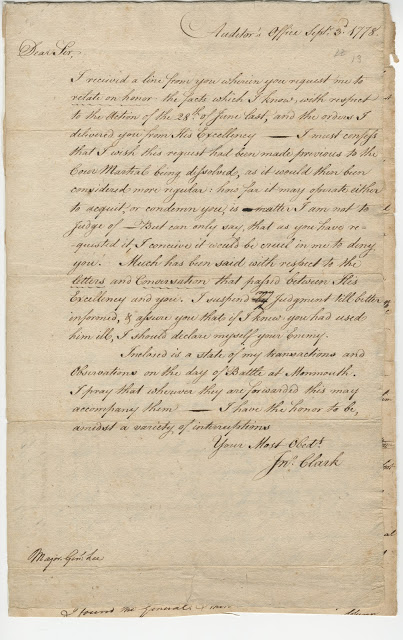 Auditor's Office Sept. 3d. 1778
Dear Sir,
I received a line from you wherein you request me to
relate on honor the facts which I know, with respect
to the Action of the 28th of June last, and the orders I
delivered you from His Excellency — I must confess
that I wish this request had been made previous to the
Court Martial being dissolved, as it would then been
considered more regular: how far it may obviate either
to acquit, or condemn you, is matter I am not to
Judge of — But can only say, that as you have re-
quested it, I conceive it would be cruel in me to deny
you. Much has been said with respect to the
letters and Conversation that passed between His
Excellency and you. I suspend my Judgment till better
informed, & assure you that if I knew you had used
him ill, I should declare myself your Enemy.
Inclosed is a state of my transactions and
Observations on the day of Battle at Monmouth.
I pray that wherever they are forwarded this may
accompany them — I have the honor to be,
amidst a variety of interruptions
Your Most Obedt.
Jno. Clark
Major Genl. Lee
I found the General